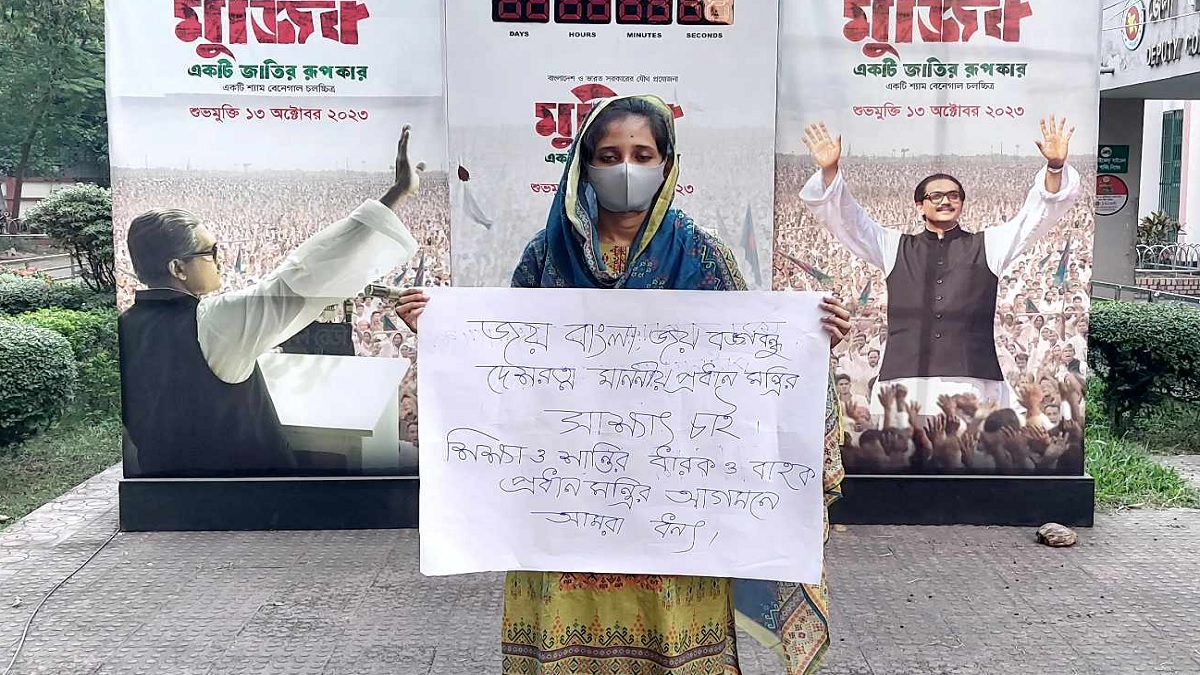 মুজিব
একটি জাতির রূপকার
একটি শ্যাম বেনেগাল চলচ্চিত্র
শুভমুক্তি ১৩ অক্টোবর ২০২৩
DAYS HOURS MINUTES SECONDS
বাংলাদেশ ও ভারত সরকারের যৌথ প্রযোজনা
মুজিব
মুজিব
একটি জাতির রূপকার
একটি শ্যাম বেনেগাল চলচ্চিত্র
শুভমুক্তি ১৩ অক্টোবর ২০২৩
DEPUTY
জয় বাংলা, জয় বঙ্গবন্ধু
দেশরত্ন মাননীয় প্রধান মন্ত্রির
সাক্ষাৎ চাই।
শিক্ষা ও শান্তির ধারক ও বাহক
প্রধান মন্ত্রির আগমনে
আমরা ধন্য।